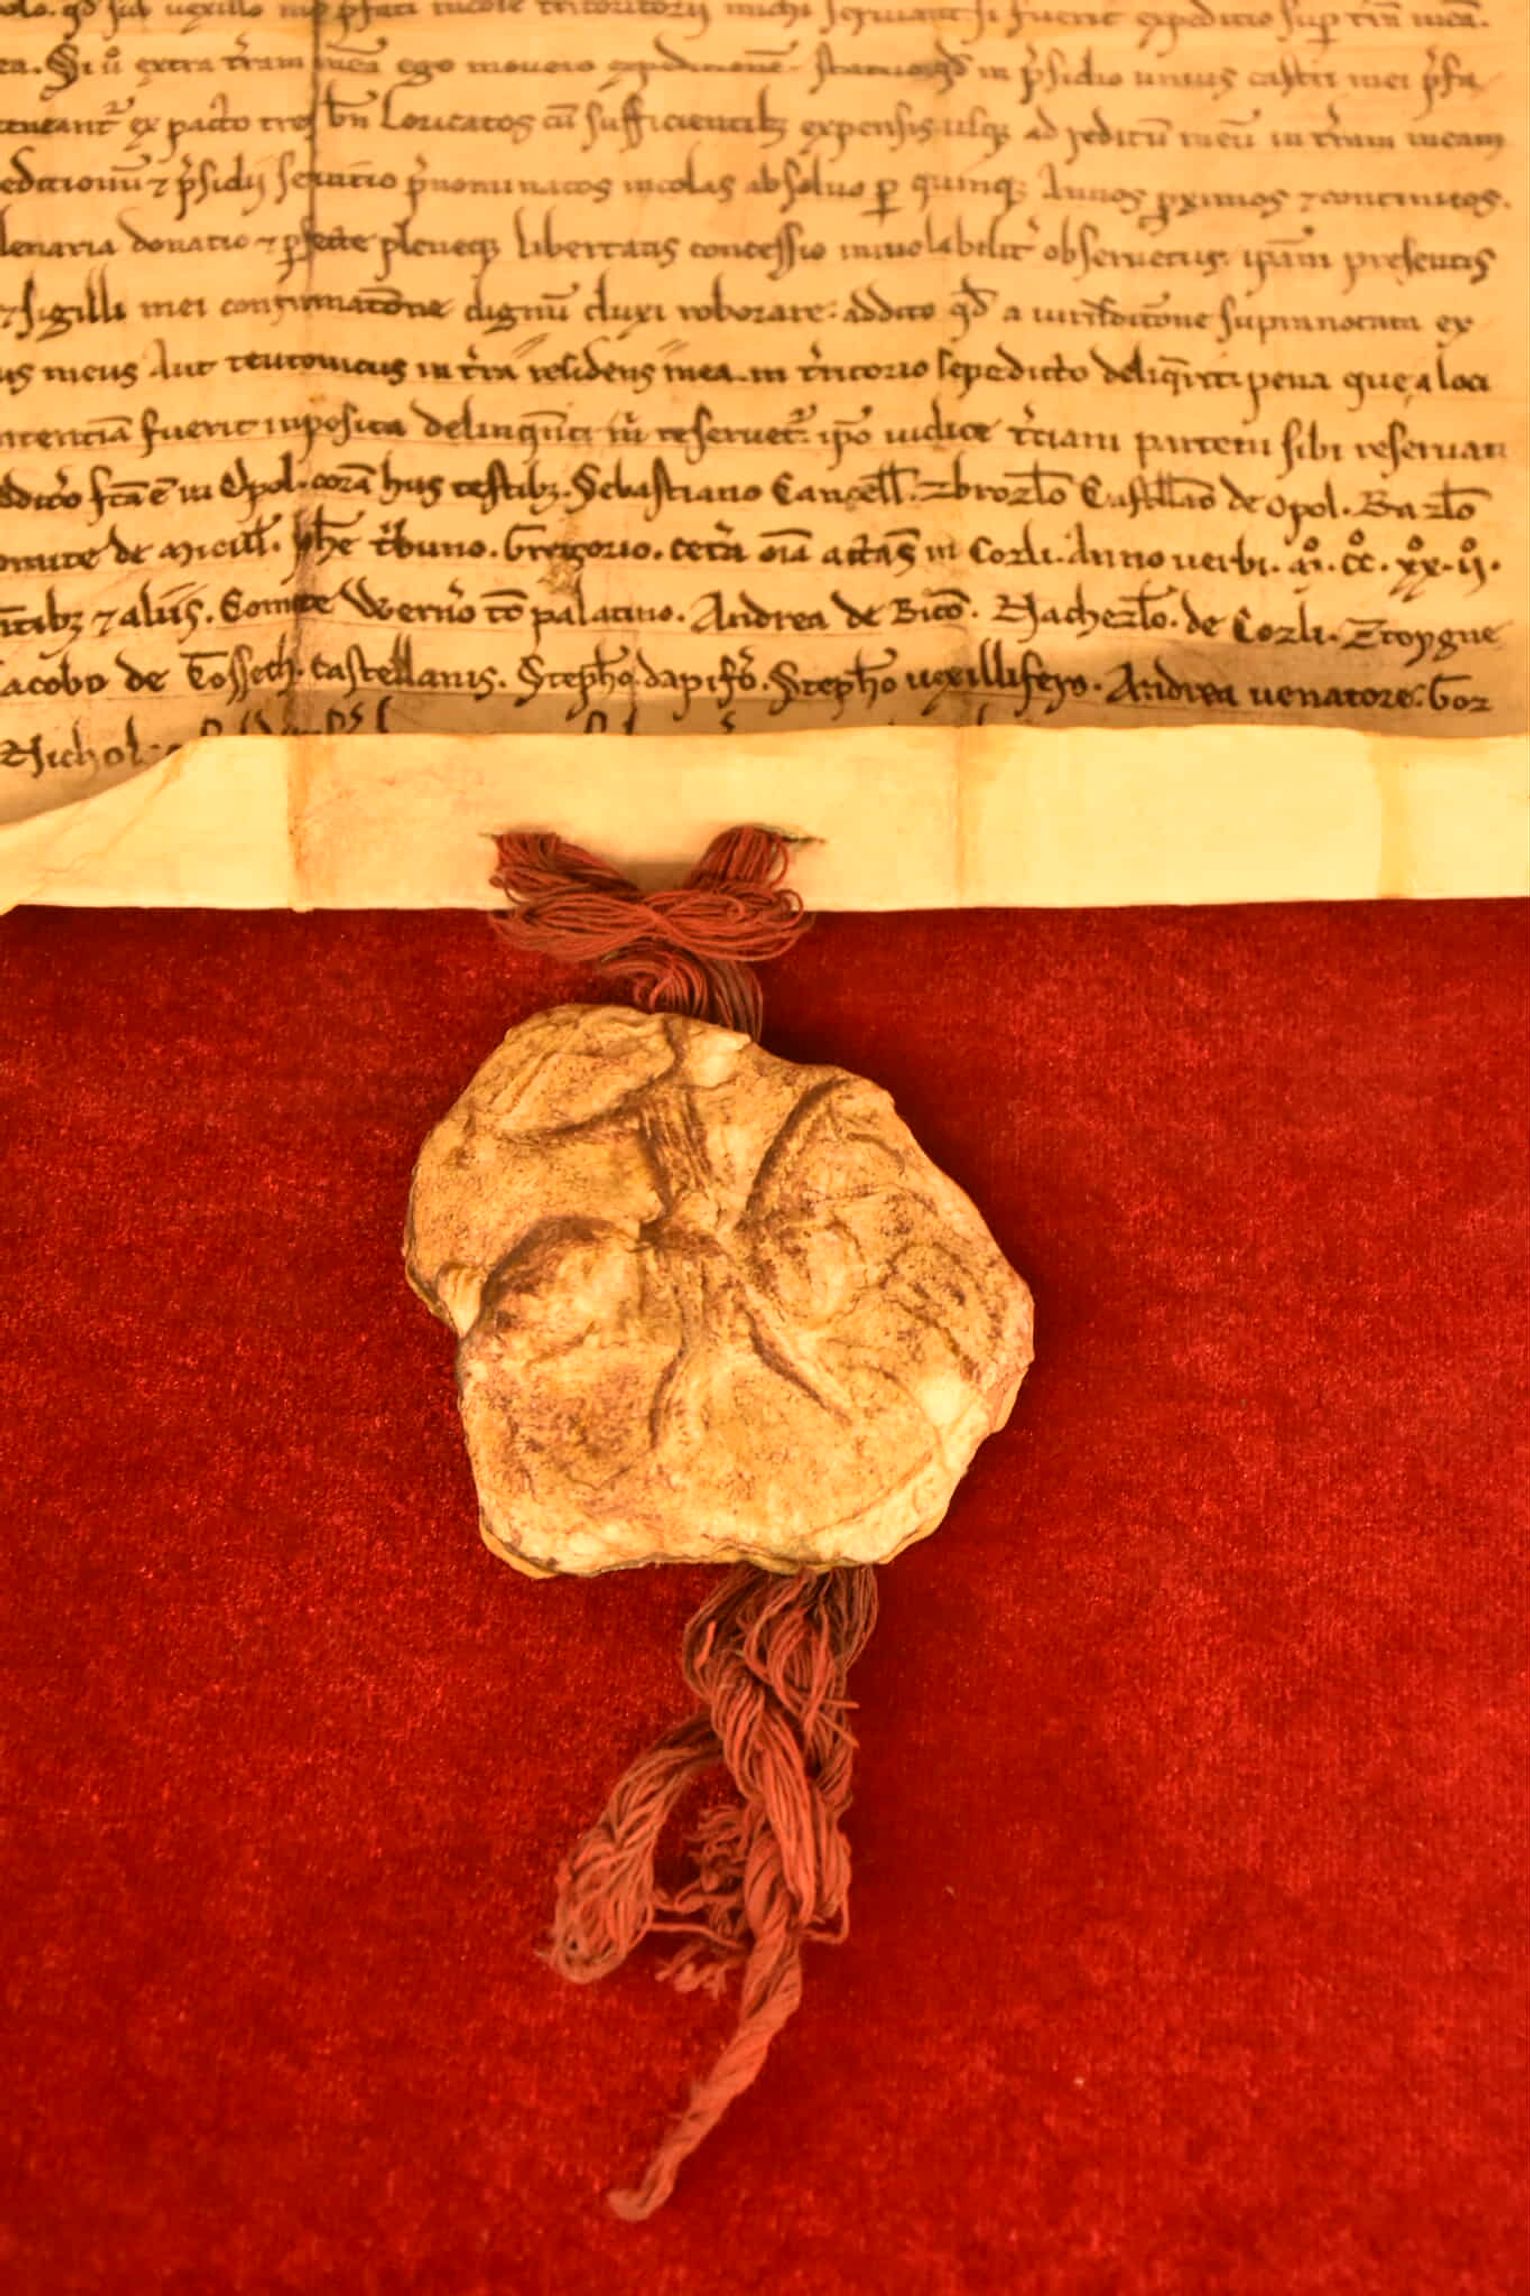 qd sub uexillo p̄fati nicolai territorii michi seruiant si fuerit expeditio sup t̄rā meā.
ea. Si ū extra t̄ram meā ego mouero expeditionē. statuo qd in p̄sidio unius castri mei p̄fa
teneant᷑ ex pacto tres bn̄ loricatos cū sufficientibꝫ expensis usqꝫ ad reditū meū in t̄ram meam
editionū ⁊ p̄sidii seruitio p̄nominatos incolas absoluo ꝑ quinqꝫ Annos ꝓximos ⁊ continuos.
lenaria donatio ⁊ ꝑfecte pleneqꝫ libertatis concessio inuiolabilit̓ obseruetur. ip̄am presentis
⁊ sigilli mei confirmatōne dignū duxi roborare. addito qd̄ a iurisdictōne supranotata ex
us meus Aut teutonicus in t̄ra residens mea. in t̄ritorio sepedicto deliq̄rit pena que a loci
ntentiā fuerit inposita delinquenti reseruet᷑. ip̄o iudice t̄ciam partem sibi reseruan
dicto fcā ē in Opol. corā hiis testibꝫ. Sebastiano Cancell̄. Zbrozl̄o Castell̄ao de Opol. Bazl̄o
omite de t̓buno. Gregorio. cet̓a oīa acta sȳ in Cozli. Anno uerbi. M̊. CC̊. XX̊. II̊.
⁊ aliis. Comite Wern̓o palatino. Andrea de Bitō. Nachezl̄o. de Cozli. Ztoygne
acobo de Tossech. castellanis. Steph̄o. dapif̓o. Steph̄o uexillifero. Andrea uenatore. Goz
Nichol